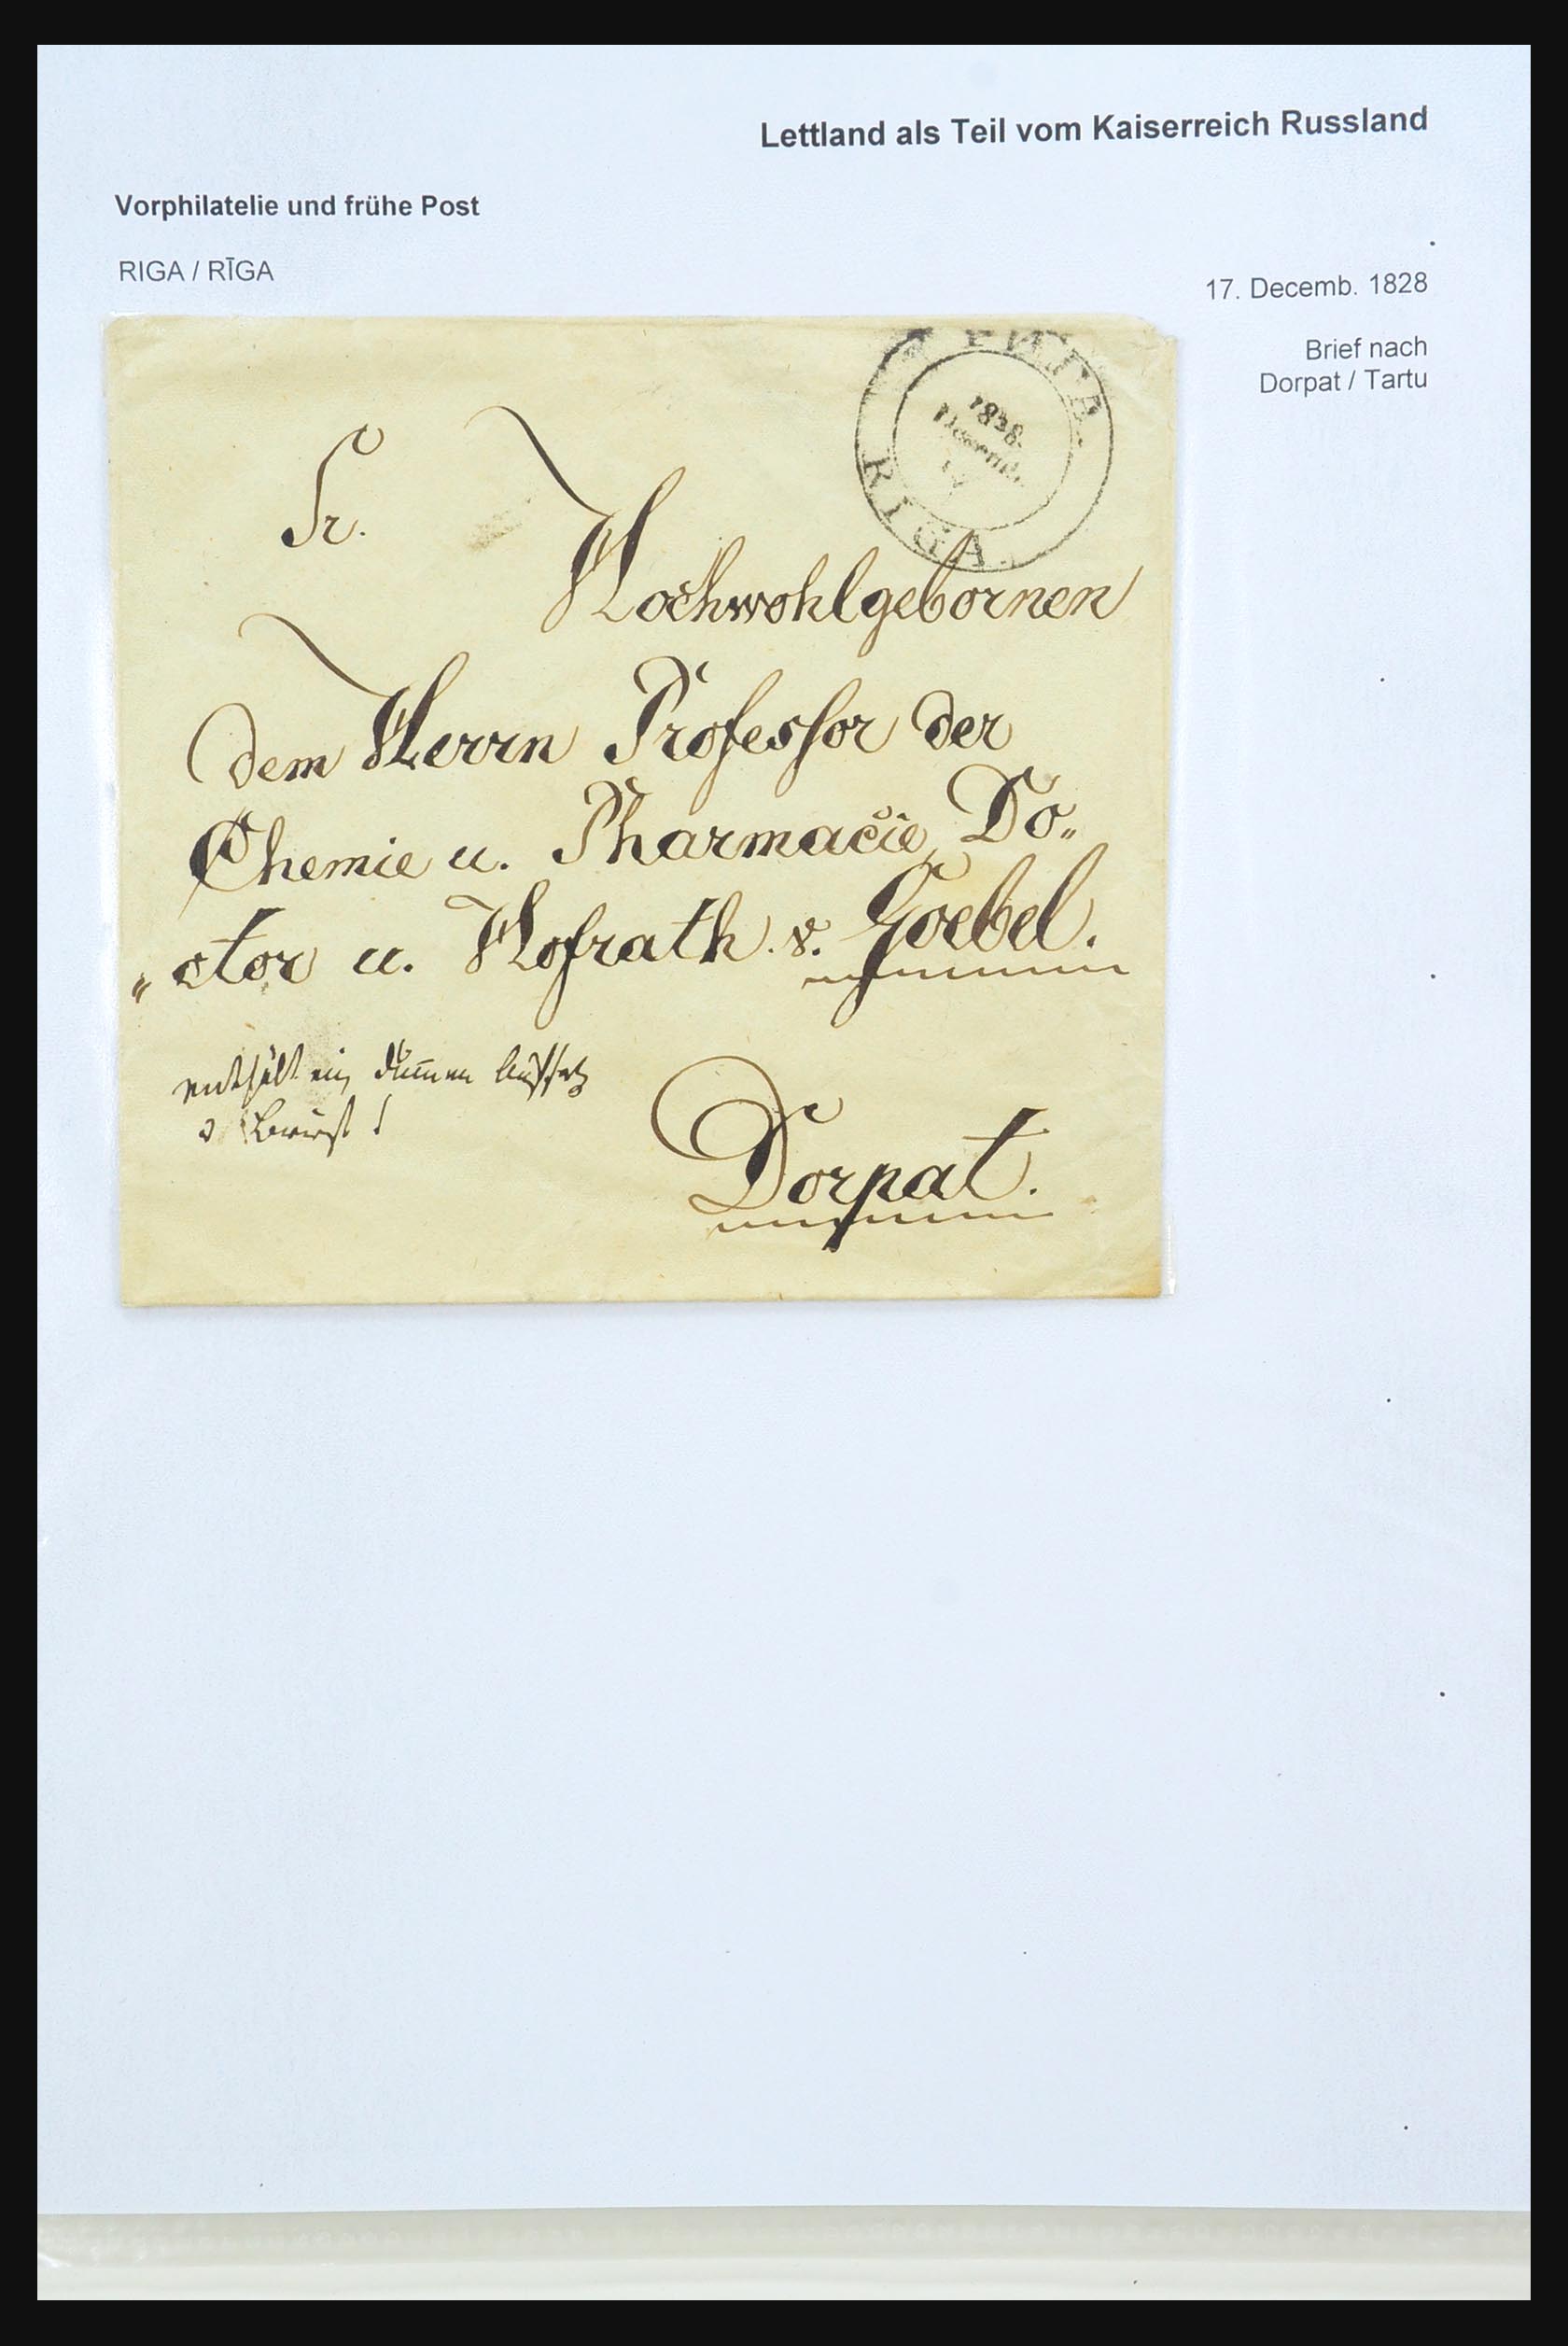 Lettland als Teil vom Kaiserreich Russland
Vorphilatelie und frühe Post
RIGA / RĪGA
17. Decemb. 1828
Brief nach
Dorpat / Tartu
РИГА.
RIGA.
Sr.
Hochwohlgebornen
dem Herrn Professor der
Chemie u. Pharmacie, Do„
„ctor u. Hofrath v. Goebel.
enthält ein
Dorpat.